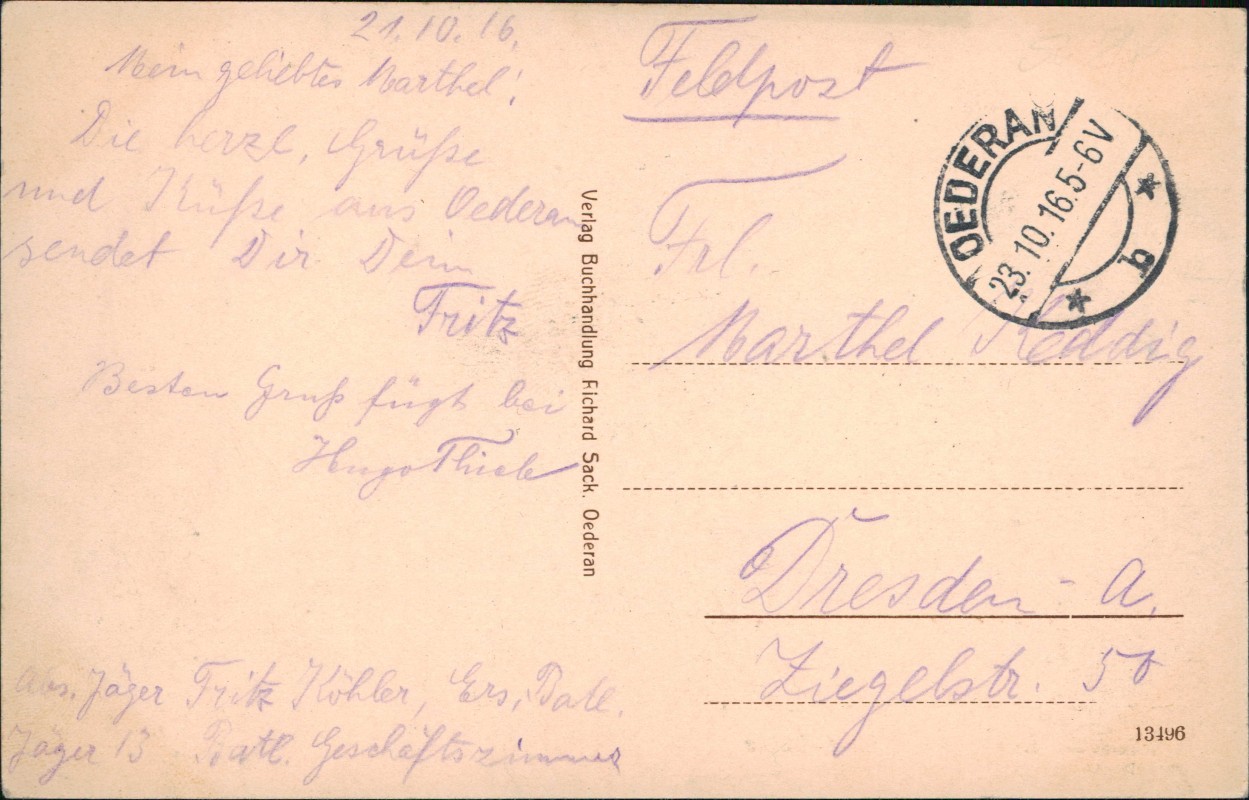 21.10.16.
Mein geliebtes Marthel!
Die herzl. Grüße
und Küße aus Oederan
sendet Dir Dein
Fritz
Besten Gruß fügt bei
Hugo Thiele
Abs. Jäger Fritz Köhler, Ers. Batl.
Jäger 13 Batl. Geschäftszimmer
Verlag Buchhandlung Richard Sack. Oederan
Feldpost
OEDERAN
23.10.16.5-6V
* b *
Frl.
Marthel Keddig
Dresden - A.
Ziegelstr. 50
13496